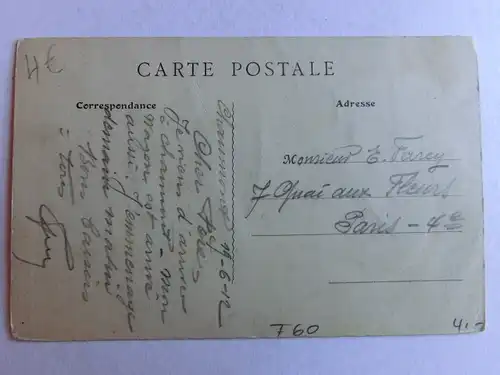 4€
CARTE POSTALE
Correspondance
Adresse
Chaumont 19-6-12
Cher Père
Je viens d'arriver
à Chaumont - Mon
wagon est arrivé
aussi J'emménage
demain matin
Bons baisers
à tous
Monsieur E. Farey
7 Quai aux Fleurs
Paris - 4e
T60
4.-